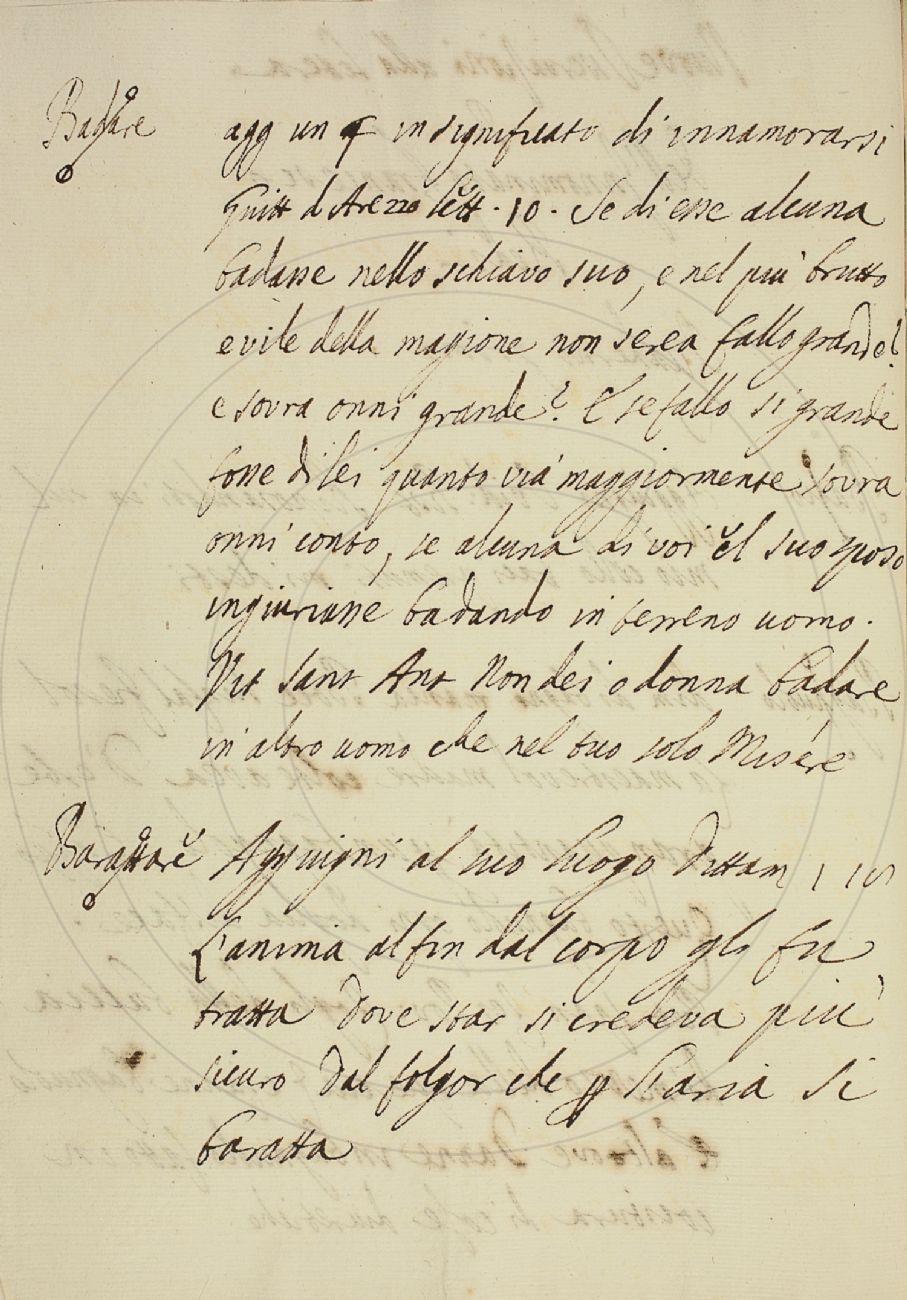 Badare agg un § in significato di innamorarsi
Guitt d Arezzo lett. 10. Se di esse alcuna
badasse nello schiavo suo, e nel più brutto
e vile della magione non serea fallo grande?
e sovra onni grande? E se fallo si grande
fosse di lei quanto via maggiormente sovra
onni conto, se alcuna di voi el suo sposo
ingiuriasse badando in terreno uomo.
Vit Sant Ant Non dei o donna badare
in altro uomo che nel tuo solo Misére
Barattare Aggiugni al suo luogo Dittam 1
L'anima al fin dal corpo gli fu
tratta Dove star si credeva più
sicuro Dal folgor che p l'aria si
baratta